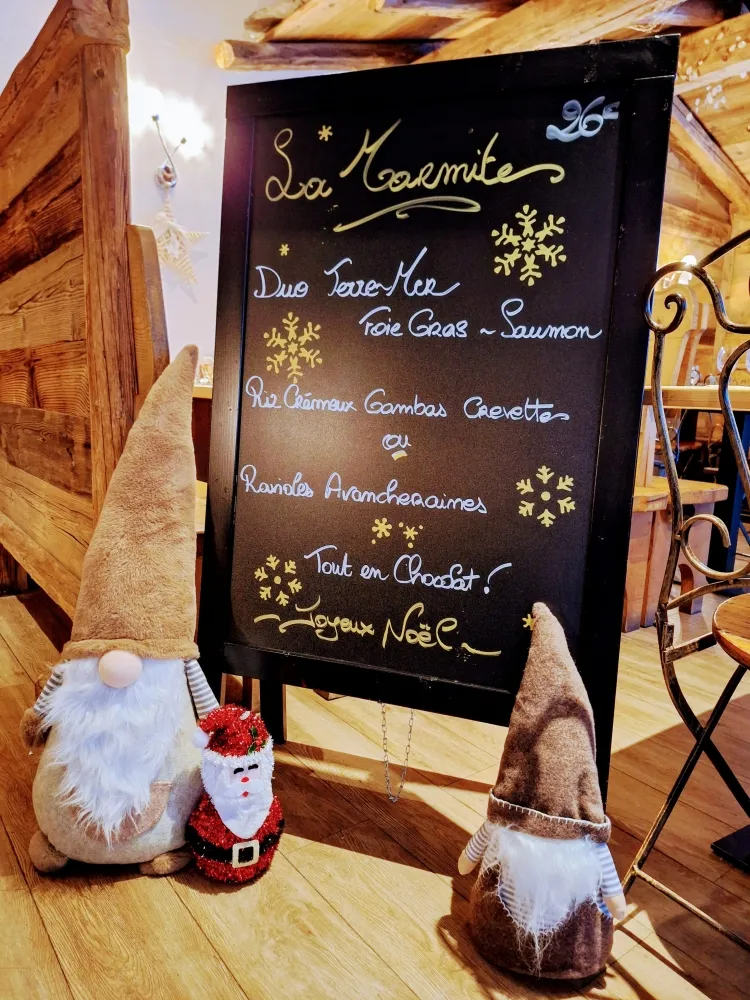 26€
La Marmite
Duo Terre-Mer
Foie Gras ~ Saumon
Riz Crémeux Gambas Crevettes
ou
Ravioles Avancheraines
Tout en Chocolat !
Joyeux Noël